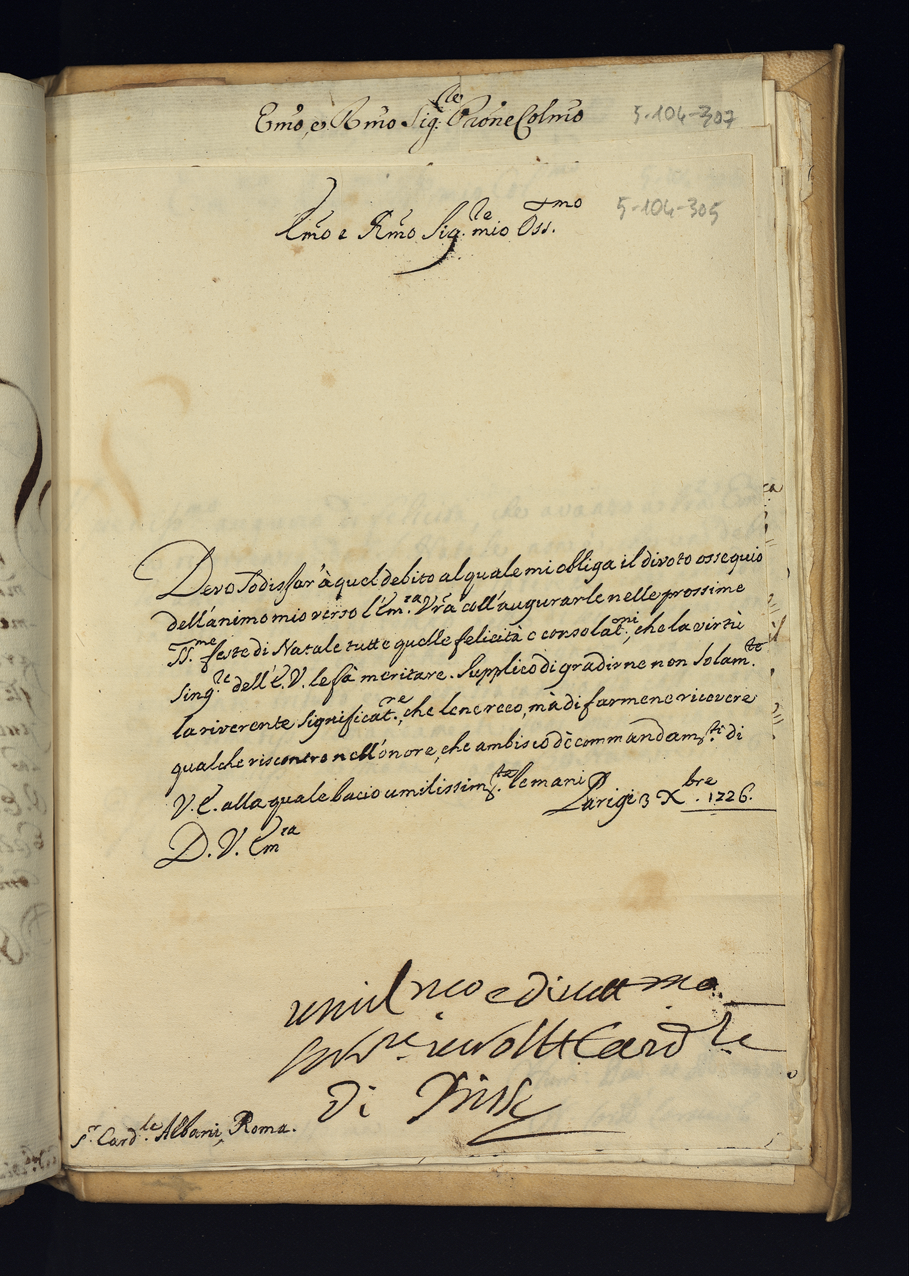 Emo, e Rmo Sig.re Prōne Colmo
5-104-307
Emo e Rmo Sig.re mio Oss.mo
5-104-305
Devo sodisfar' à quel debito al quale mi obliga il divoto ossequio
dell'animo mio verso l'Em.za Vra coll'augurarle nelle prossime
SS.me feste di Natale tutte quelle felicità e consolat.ni, che la virtù
sing.re dell'E.V. le fà meritare. Supplico di gradirne non solam.te
la riverente significat.ne, che le ne reco, mà di farmene ricevere
qualche riscontro nell'onore, che ambisco de commandam.ti di
V.E. alla quale bacio umilissim.te le mani Parigi 3 Xbre. 1726.
D.V. Em.za
Card.le
Di
Sr. Card.le Albani, Roma.